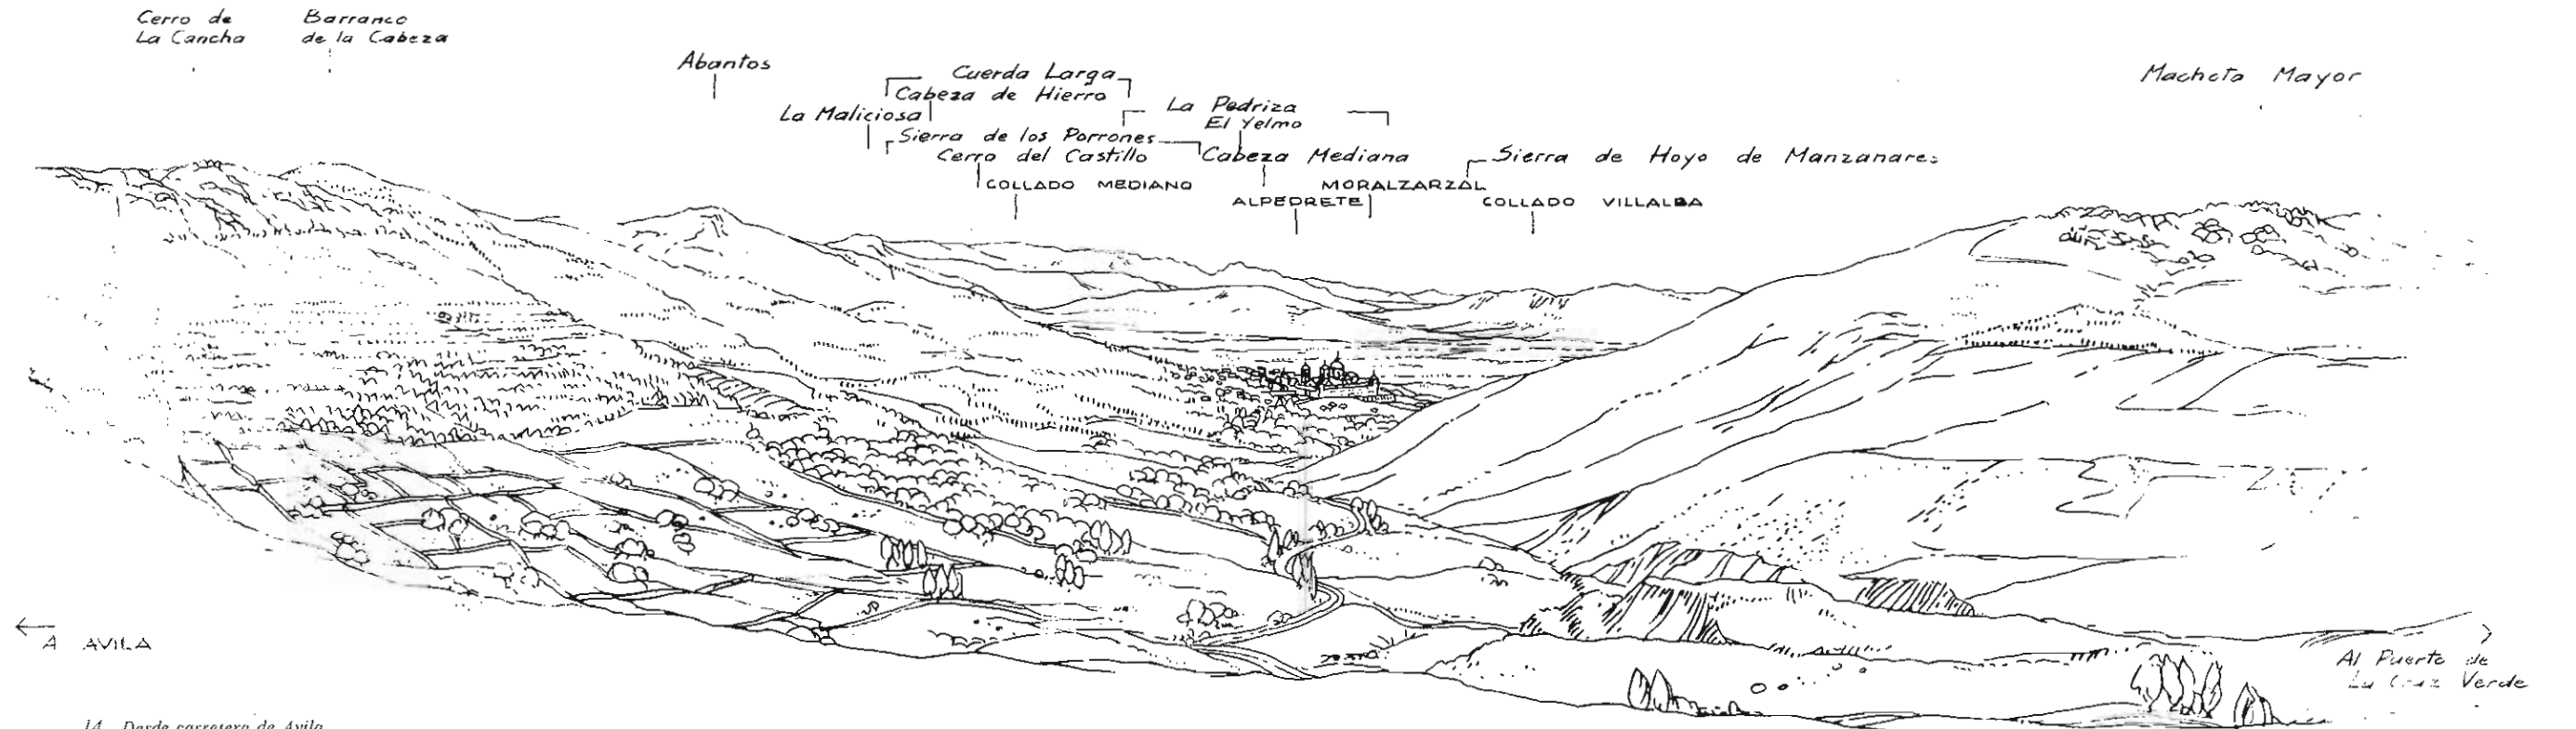 Cerro de
La Cancha
Barranco
de la Cabeza
Abantos
Cuerda Larga
Cabeza de Hierro
La Maliciosa
La Pedriza
El Yelmo
Sierra de los Porrones
Cerro del Castillo
Cabeza Mediana
Sierra de Hoyo de Manzanares
COLLADO MEDIANO
MORALZARZAL
ALPEDRETE
COLLADO VILLALBA
Machota Mayor
A AVILA
Al Puerto de
La Cruz Verde
14 Desde carretera de Avila